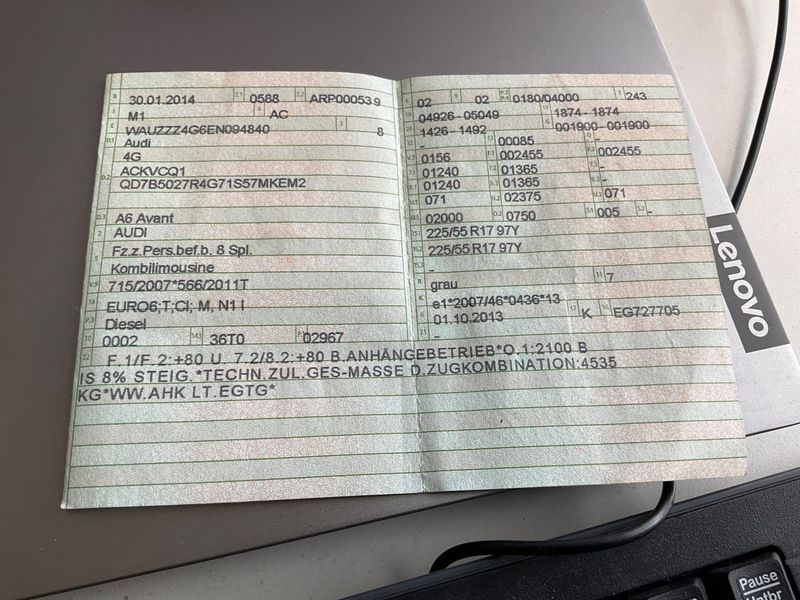 B 30.01.2014 2.1 0588 2.2 ARP000539
J M1 4 AC
E WAUZZZ4G6EN094840 3 8
D.1 Audi
4G
D.2 ACKVCQ1
QD7B5027R4G71S57MKEM2
D.3 A6 Avant
2 AUDI
5 Fz.z.Pers.bef.b. 8 Spl.
Kombilimousine
V.9 715/2007*566/2011T
14 EURO6;T;CI; M, N1 I
P.3 Diesel
10 0002 14.1 36T0 P.1 02967
L 02 9 02 P.2 P.4 0180/04000 T 243
18 04926 - 05049 19 1874 - 1874
20 1426 - 1492 G 001900 - 001900
12 - 13 00085 Q -
V.7 0156 F.1 002455 F.2 002455
7.1 01240 7.2 01365 7.3 -
8.1 01240 8.2 01365 8.3 -
U.1 071 U.2 02375 U.3 071
O.1 02000 O.2 0750 S.1 005 S.2 -
15.1 225/55 R17 97Y
15.2 225/55 R17 97Y
15.3 -
R grau 11 7
K e1*2007/46*0436*13
6 01.10.2013 17 K 16 EG727705
21 -
22 F.1/F.2:+80 U. 7.2/8.2:+80 B.ANHÄNGEBETRIEB*O.1:2100 B.
IS 8% STEIG.*TECHN.ZUL.GES-MASSE D.ZUGKOMBINATION:4535
KG*WW.AHK LT.EGTG*
Lenovo
Pause
Untbr